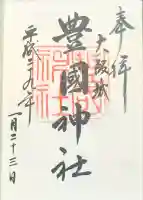 奉拝
大阪城
豊國神社
平成二九年
一月二十三日